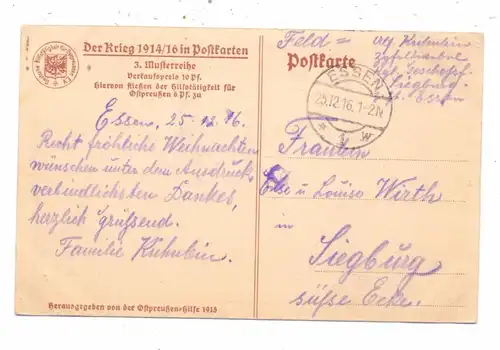 Der Krieg 1914/16 in Postkarten
3. Musterreihe
Verkaufspreis 10 Pf.
Hiervon fließen der Hilfstätigkeit für
Ostpreußen 6 Pf. zu
Essen, 25.12.16.
Recht fröhliche Weihnachten
wünschen unter dem Ausdruck
verbindlichsten Dankes,
herzlich grüßend.
Familie Kühnbin.
Herausgegeben von der Ostpreußen-Hilfe 1915
Feld =
Postkarte
Siegburg
Essen
ESSEN
25.12.16. 1-2N
* 1 w
Fräulein
Else u Louise Wirth
in
Siegburg
süße Ecke.